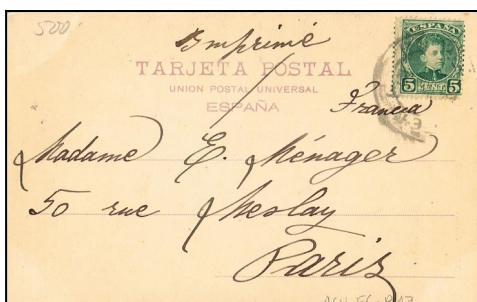 500
Imprimé
ESPAÑA
TARJETA POSTAL
UNION POSTAL UNIVERSAL
ESPAÑA
5 5
Francia
Madame E. Ménager
50 rue Meslay
Paris